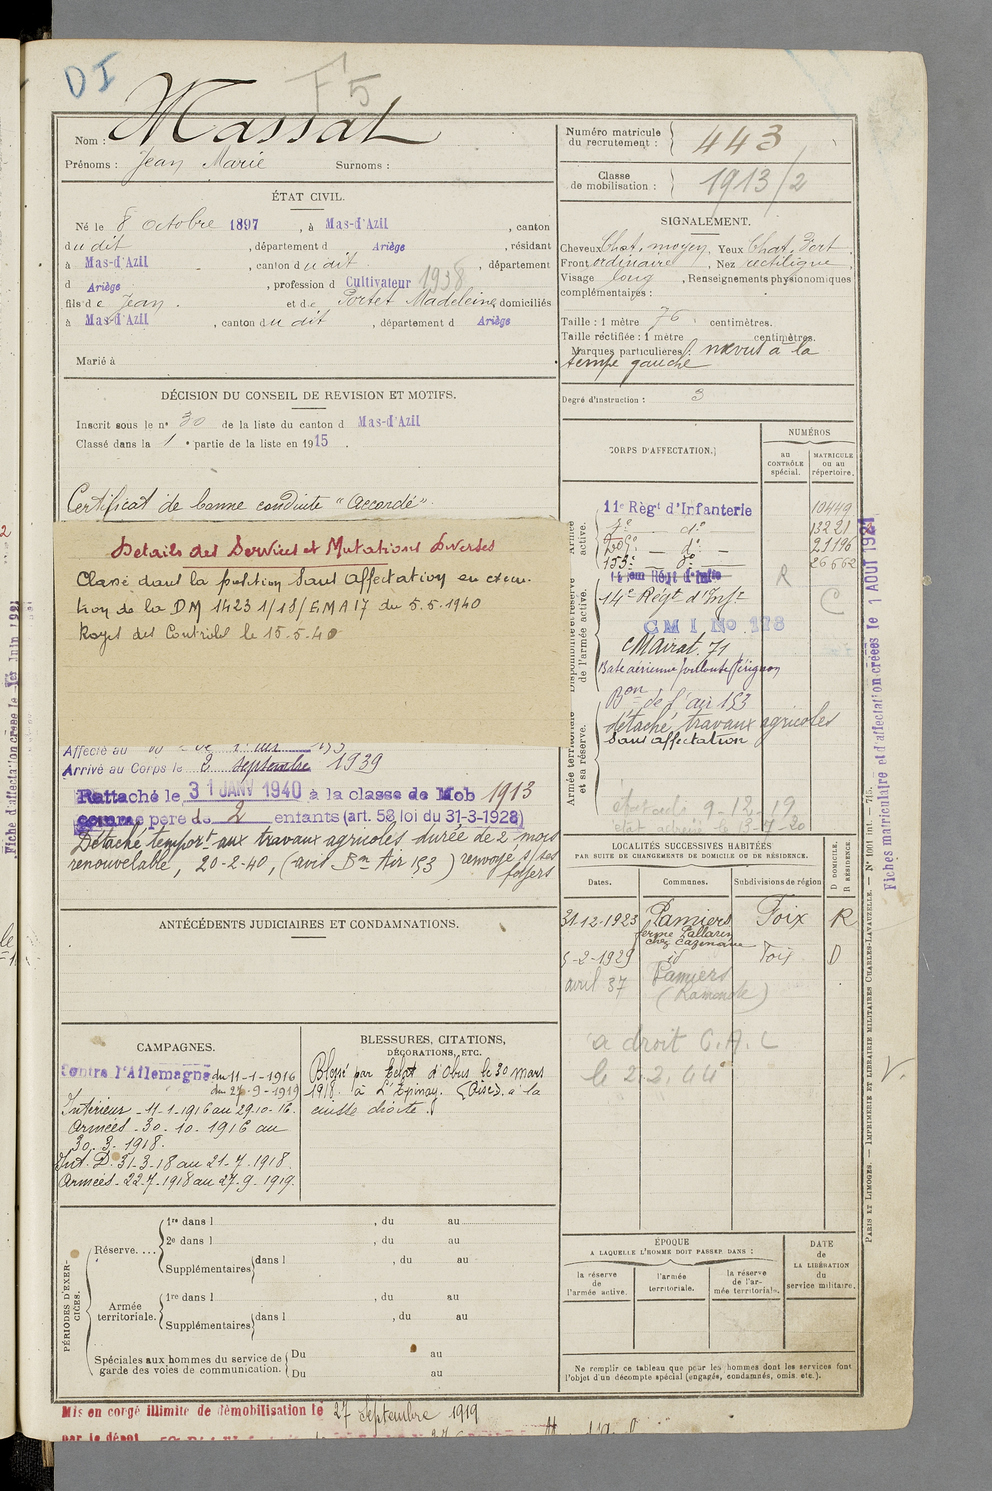 DI
F5
Nom : Massat
Prénoms : Jean Marie Surnoms :
ÉTAT CIVIL.
Né le 8 octobre 1897, à Mas-d'Azil, canton
du dit, département d Ariège, résidant
à Mas-d'Azil, canton du dit, département
d Ariège, profession d Cultivateur 1938
fils de Jean et de Portet Madeleine, domiciliés
à Mas-d'Azil, canton du dit, département d Ariège
Marié à
DÉCISION DU CONSEIL DE REVISION ET MOTIFS.
Inscrit sous le n° 30 de la liste du canton d Mas-d'Azil
Classé dans la 1 e partie de la liste en 1915.
Certificat de bonne conduite "Accordé"
Détails des Services et Mutations Diverses
Classé dans la position Sans Affectation en exécu-
tion de la DM 1423 1/18/EMA 17 du 5.5.1940
Rayé des Contrôles le 15-5-40
Affecté au
Arrivé au Corps le 2 septembre 1939
Rattaché le 31 JANV 1940 à la classe de Mob 1913
comme père de 2 enfants (art. 58 loi du 31-3-1928)
Détaché tempor.t aux travaux agricoles durée de 2 mois
renouvelable, 20-2-40, (avis Bn Air 153) renvoyé s/ses
foyers
ANTÉCÉDENTS JUDICIAIRES ET CONDAMNATIONS.
CAMPAGNES.
Contre l'Allemagne du 11-1-1916
au 27-9-1919
Intérieur - 11-1-1916 au 29-10-16.
Armées - 30-10-1916 au
30-3-1918.
Int. D. 31-3-18 au 21-7-1918.
Armées - 22-7-1918 au 27-9-1919.
BLESSURES, CITATIONS,
DÉCORATIONS, ETC.
Blessé par Eclat d'Obus le 30 mars
1918 à L'Epinay (Oise) à la
cuisse droite.
PÉRIODES D'EXERCICES.
Réserve....
1re dans l , du au
2e dans l , du au
Supplémentaires dans l , du au
Armée territoriale.
1re dans l , du au
Supplémentaires dans l , du au
Spéciales aux hommes du service de
garde des voies de communication.
Du au
Du au
Mis en congé illimité de démobilisation le 27 Septembre 1919
par le dépôt
Numéro matricule
du recrutement : 443
Classe
de mobilisation : 1913/2
SIGNALEMENT.
Cheveux Chat. moyen Yeux Chat. Fort
Front ordinaire, Nez rectiligne
Visage long, Renseignements physionomiques
complémentaires :
Taille : 1 mètre 76 centimètres.
Taille rectifiée : 1 mètre centimètres.
Marques particulières : nævus à la
tempe gauche
Degré d'instruction : 3
CORPS D'AFFECTATION.
NUMÉROS
au
CONTRÔLE
spécial.
MATRICULE
ou au
répertoire.
Disponibilité et réserve de l'armée active.
Armée territoriale et sa réserve.
11e Régt d'Infanterie 10449
13221
209e _ d° _ 21196
153e _ d° 26662
14em Régt d'Infie
R
14e Régt d'Inf.ie
C
CMI No 178
Mairat. 71
Base aérienne Toulouse Francazal
Bon de l'air 153
détaché travaux agricoles
Sans affectation
9-12-19
13-7-20
LOCALITÉS SUCCESSIVES HABITÉES
PAR SUITE DE CHANGEMENTS DE DOMICILE OU DE RÉSIDENCE.
Dates. Communes. Subdivisions de région. D DOMICILE. R RÉSIDENCE.
31-12-1923 Pamiers Foix R
ferme Pallarin
chez Cazenave
5-2-1929 id Foix D
avril 37 Pamiers
(Ramonde)
a droit C.A.C
le 2.2.44
V.
ÉPOQUE
A LAQUELLE L'HOMME DOIT PASSER DANS :
la réserve
de
l'armée active.
l'armée
territoriale.
la réserve
de l'ar-
mée territoriale.
DATE
de
LA LIBÉRATION
du
service militaire.
Ne remplir ce tableau que pour les hommes dont les services font
l'objet d'un décompte spécial (engagés, condamnés, omis, etc.).
PARIS ET LIMOGES. — IMPRIMERIE ET LIBRAIRIE MILITAIRES CHARLES-LAVAUZELLE. — N° 1001 int. — 715.
Fiches matriculaire et d'affectation créées le 1 AOUT 1921
Fiche d'affectation créée le 1er Juin 1921